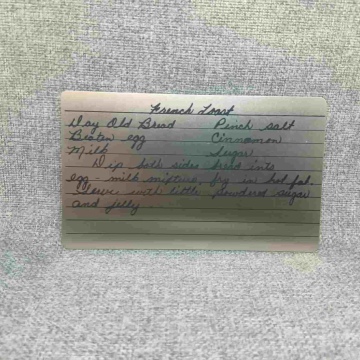 French Toast
Day Old Bread Pinch salt
Beaten egg Cinnamon
Milk Sugar
Dip both sides bread into
egg - milk mixture, fry in hot fat.
Serve with little powdered sugar
and jelly